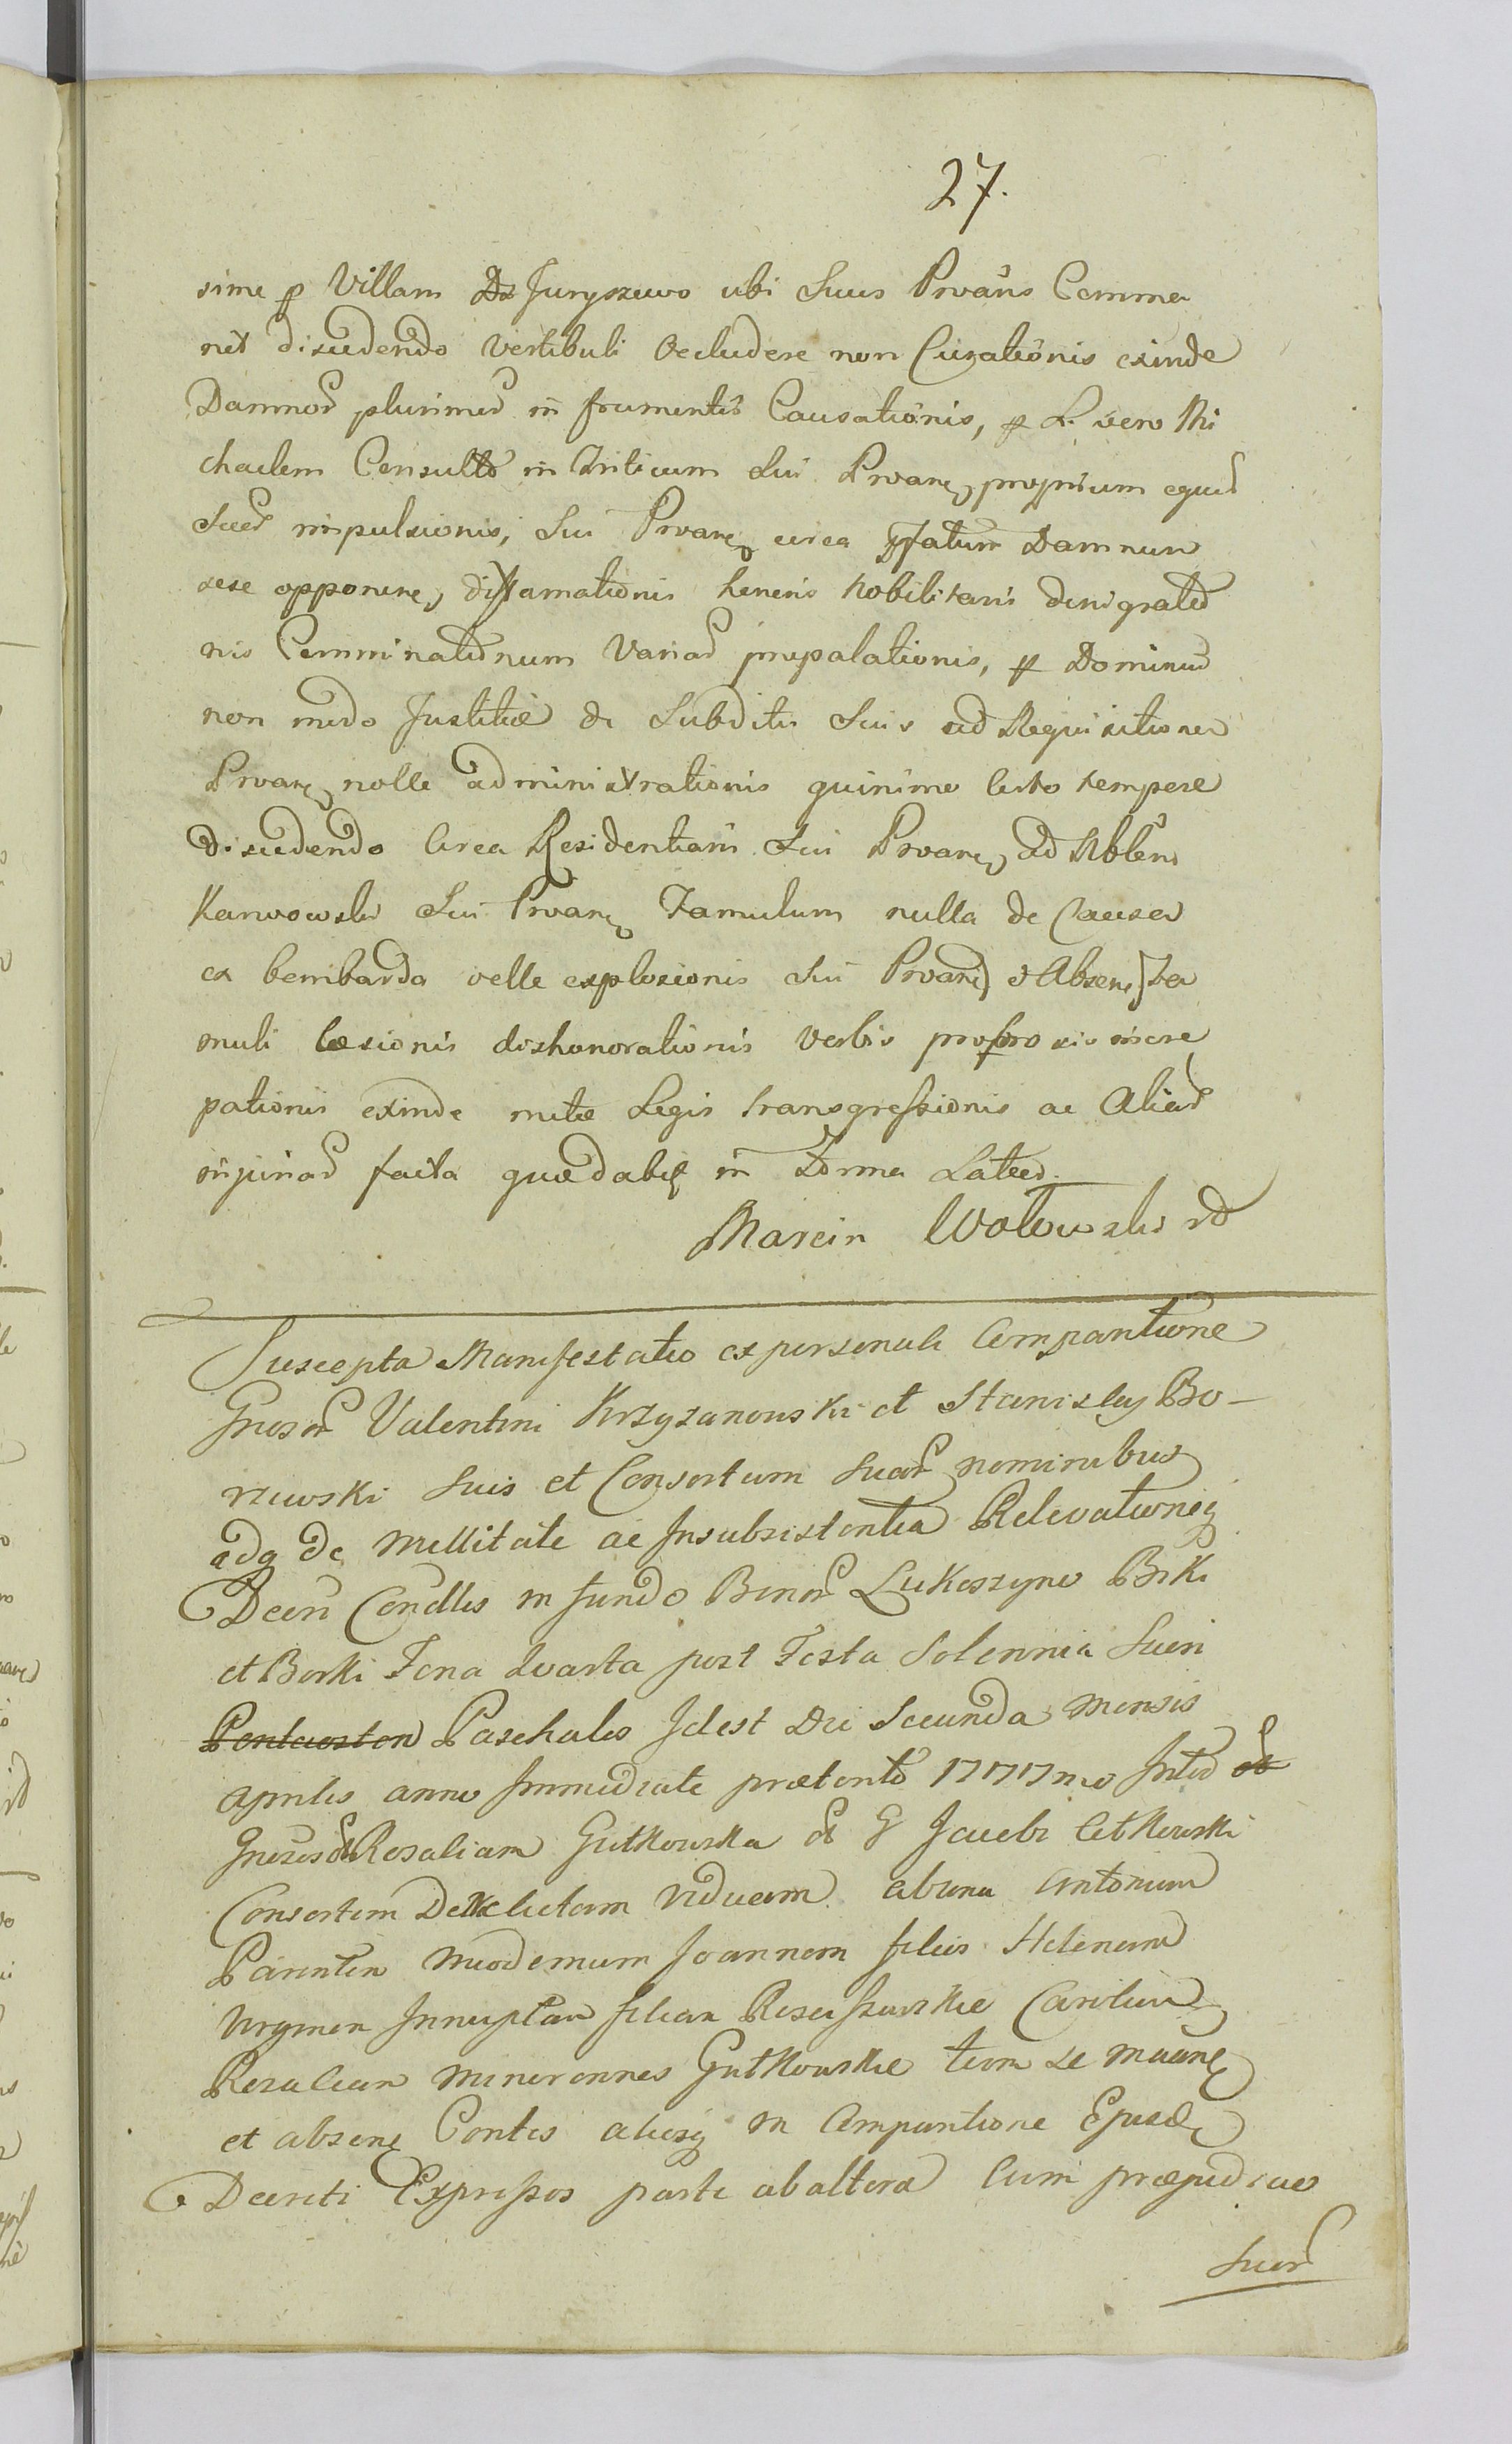 27.
sime p Villam Juryszewo ubi Suus Prvans Comma
net discedendo Vestibuli Occludere non Curationis exinde
Damnor plurimor in frumentis Causationis, p L. vero Mi
chaelem Consulto in Triticum Sui Prvane proprium equor
Suor impulsionis, Sui Prvane circa pfatum Damnum
sese opponere, diffamationis honoris Nobilitaris denigratio
nis Comminationum Variar propalationis, p Dominum
non modo Justitiæ de Subditis Suis ad Requisitionem
Prvane nolle administrationis quinimo certo tempore
discedendo Circa Residentiam Sui Prvane ad Nblem
Karwowski Sui Prvane Famulum nulla de Causa
ex bombarda velle explosionis Sui Prvane et Absen Fa
muli læsionis dishonorationis Verbis probrosis incre
pationis exinde metæ Legis transgressionis ac Aliar
injuriar facta quædabit in Forma Latior
Marcin Wolowski
Suscepta Manifestatio ex personali Comparitione
Gnosor Valentini Krzyzanowski et Stanislaj Bo-
rzewski Suis et Consortum Suar nominibus
adq de Nullitate ac Insubsistentia Relevationeq
Decri Condlis in fundo Bonor Lukoszyno Biki
et Borki Feria Quarta post Festa Solennia Sacri
Pentecosten Paschalis Idest Die Secunda Mensis
Aprilis anno Immediate præterito 1777mo Inter et
Gnosos Rosaliam Gutkowska G Jacobi Cetkowski
Consortem Derelictam Viduam ab una Antonium
Parentem Joannem filios Helenam
Virginem Innuptam filiam Carolum
Rosaliam Minorennes Gutkowskie tum se
et absene Contis aliosq in Comparitione Ejusd
Decreti Expressos parte ab altera Cum præjudicio
Suor